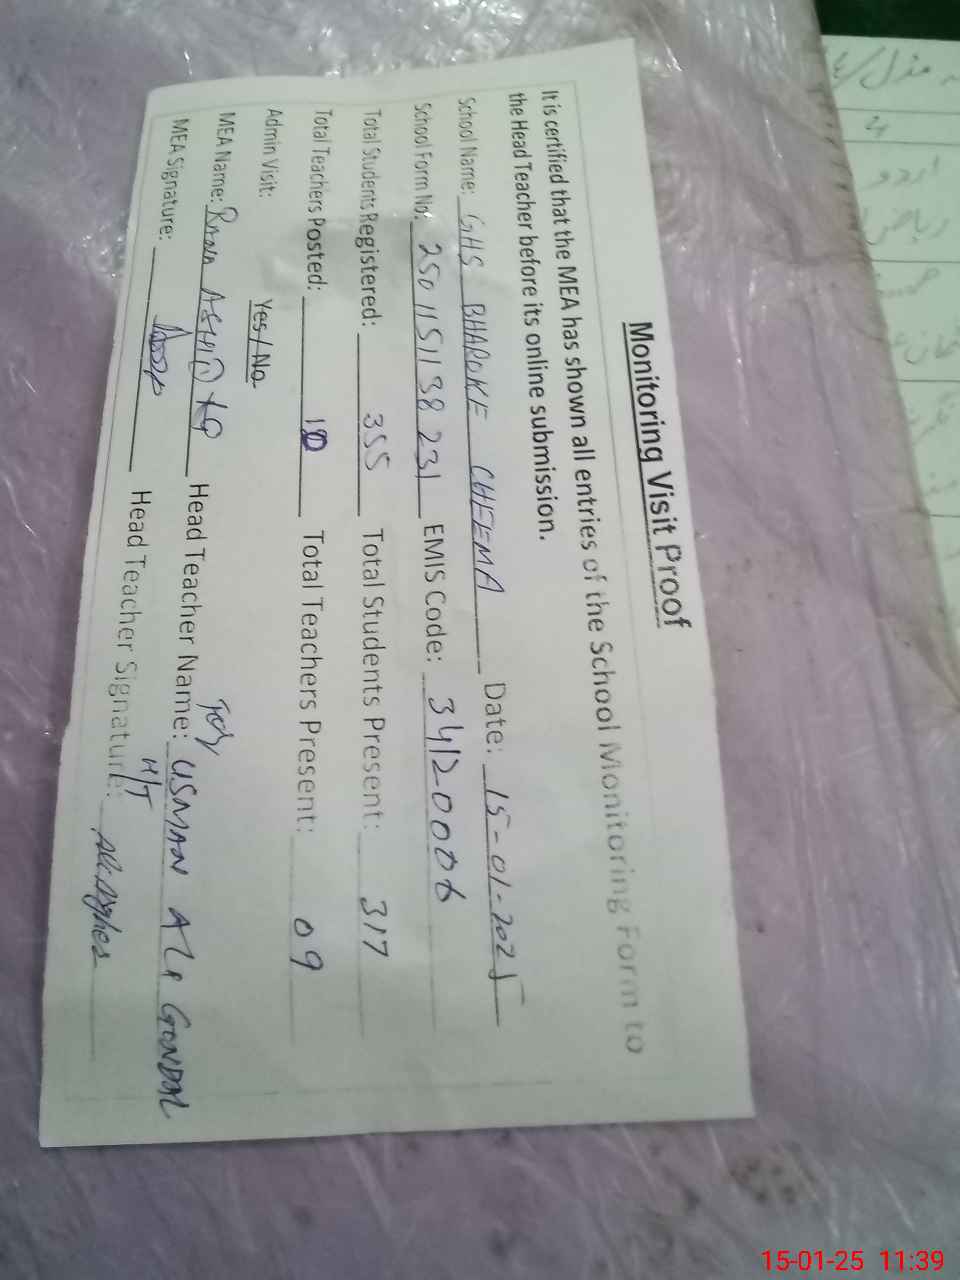 Monitoring Visit Proof
It is certified that the MEA has shown all entries of the School Monitoring Form to
the Head Teacher before its online submission.
School Name: GHS BHAROKE CHEEMA Date: 15-01-2025
School Form No: 2501151138231 EMIS Code: 34120006
Total Students Registered: 355 Total Students Present: 317
Total Teachers Posted: 10 Total Teachers Present: 09
Admin Visit: Yes / No
For
MEA Name: RANA Head Teacher Name: USMAN ALI GONDAL
H/T
MEA Signature: Head Teacher Signature:
اردو
ریاضی
15-01-25 11:39